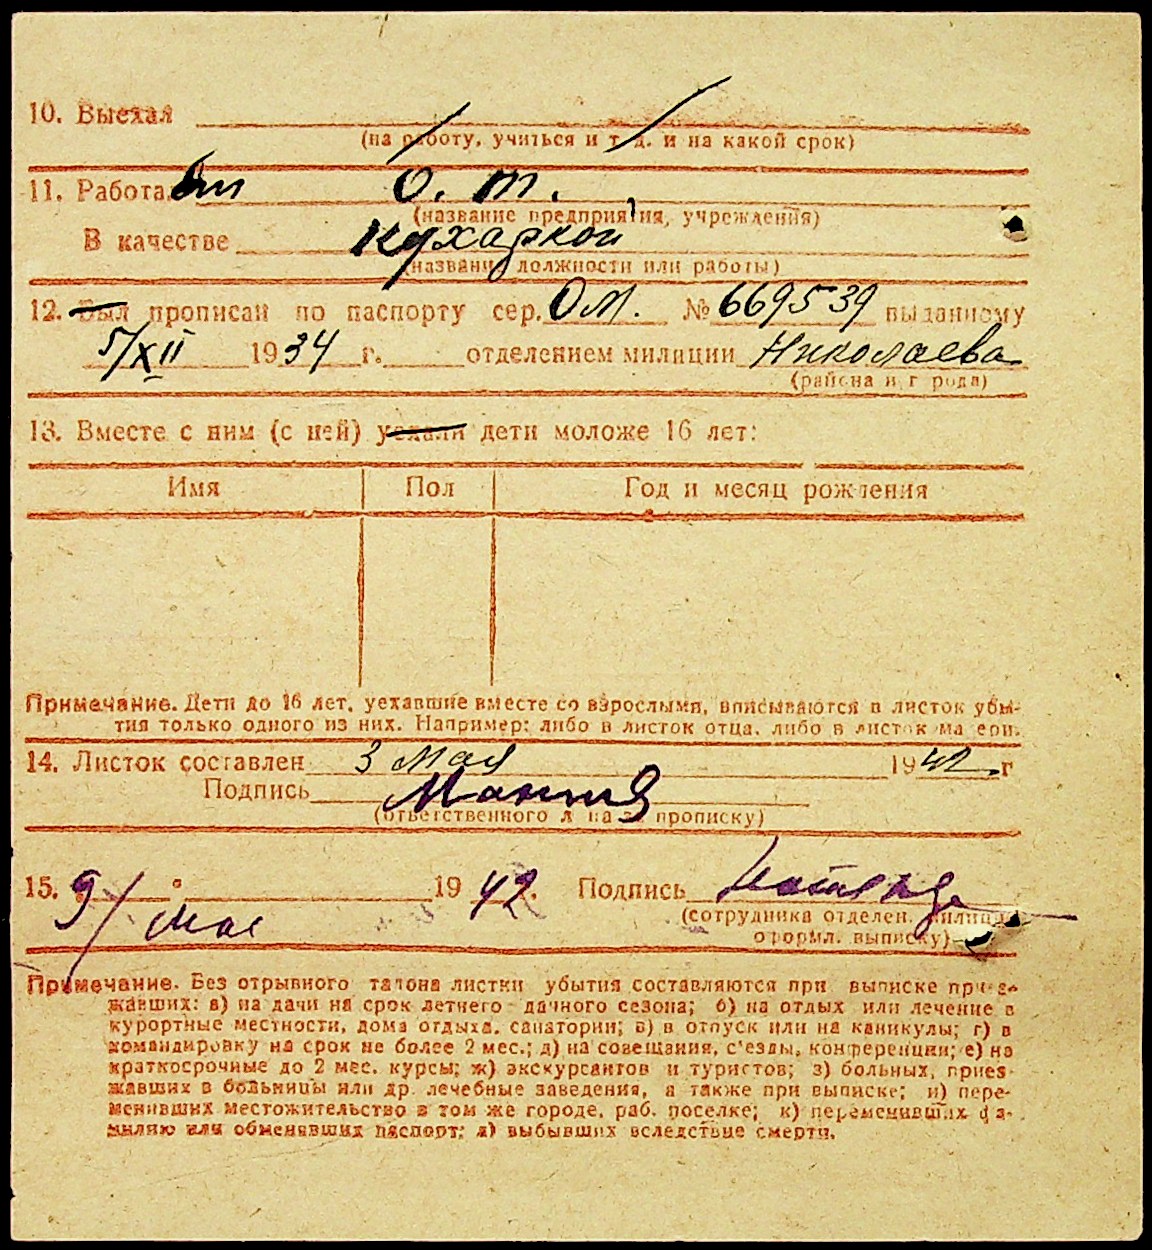 10. Выехал
(на работу, учиться и т. д. и на какой срок)
11. Работал О. Т.
(название предприятия, учреждения)
В качестве кухаркой
(название должности или работы)
12. Был прописан по паспорту сер. ОМ. № 669539 выданному
5/XII 1934 г. отделением милиции Николаева
(района и города)
13. Вместе с ним (с ней) уехали дети моложе 16 лет:
Имя Пол Год и месяц рождения
Примечание. Дети до 16 лет, уехавшие вместе со взрослыми, вписываются в листок убы-
тия только одного из них. Например: либо в листок отца, либо в листок матери.
14. Листок составлен 3 мая 1942 г
Подпись
(ответственного лица за прописку)
15. 9/ мая 1942. Подпись
(сотрудника отделен. милиции
оформл. выписку)
Примечание. Без отрывного талона листки убытия составляются при выписке приез-
жавших: а) на дачи на срок летнего дачного сезона; б) на отдых или лечение в
курортные местности, дома отдыха, санатории; в) в отпуск или на каникулы; г) в
командировку на срок не более 2 мес.; д) на совещания, с'езды, конференции; е) на
краткосрочные до 2 мес. курсы; ж) экскурсантов и туристов; з) больных, приез-
жавших в больницы или др. лечебные заведения, а также при выписке; и) пере-
менивших местожительство в том же городе, раб. поселке; к) переменивших фа-
милию или обменявших паспорт; л) выбывших вследствие смерти.